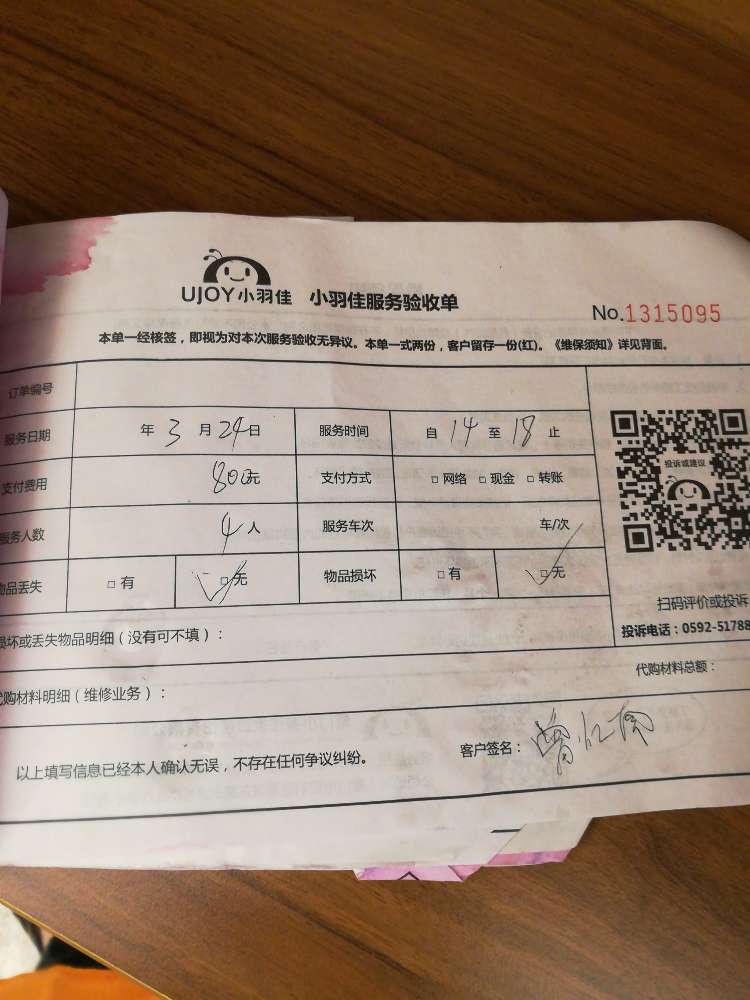 UJOY小羽佳 小羽佳服务验收单
No.1315095
本单一经核签，即视为对本次服务验收无异议。本单一式两份，客户留存一份(红)。《维保须知》详见背面。
订单编号
服务日期 年 3 月 24 日 服务时间 自 14 至 18 止
支付费用 800元 支付方式 □ 网络 □ 现金 □ 转账
服务人数 4 人 服务车次 车/次
物品丢失 □ 有 □ 无 物品损坏 □ 有 □ 无
投诉或建议
扫码评价或投诉
投诉电话：0592-51788
损坏或丢失物品明细（没有可不填）：
代购材料明细（维修业务）： 代购材料总额：
以上填写信息已经本人确认无误，不存在任何争议纠纷。 客户签名：